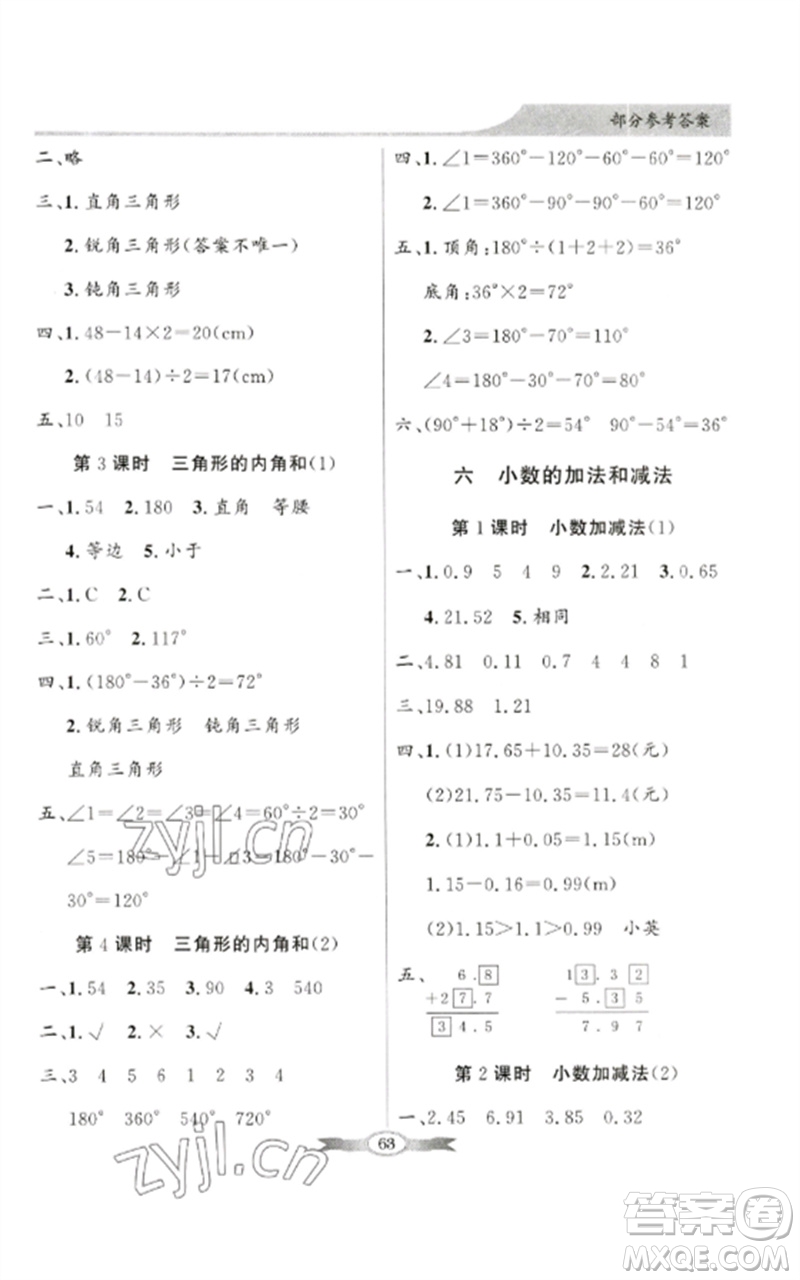 部分参考答案
二、略
三、1.直角三角形
2.锐角三角形(答案不唯一)
3.钝角三角形
四、1.48-14×2=20(cm)
2.(48-14)÷2=17(cm)
五、10 15
第3课时 三角形的内角和(1)
一、1.54 2.180 3.直角 等腰
4.等边 5.小于
二、1.C 2.C
三、1.60° 2.117°
四、1.(180°-36°)÷2=72°
2.锐角三角形 钝角三角形
直角三角形
五、∠1=∠2=∠3=∠4=60°÷2=30°
∠5=180°-∠1-∠3=180°-30°-
30°=120°
第4课时 三角形的内角和(2)
一、1.54 2.35 3.90 4.3 540
二、1.√ 2.× 3.√
三、3 4 5 6 1 2 3 4
180° 360° 540° 720°
四、1.∠1=360°-120°-60°-60°=120°
2.∠1=360°-90°-90°-60°=120°
五、1.顶角:180°÷(1+2+2)=36°
底角:36°×2=72°
2.∠3=180°-70°=110°
∠4=180°-30°-70°=80°
六、(90°+18°)÷2=54° 90°-54°=36°
六 小数的加法和减法
第1课时 小数加减法(1)
一、1.0.9 5 4 9 2.2.21 3.0.65
4.21.52 5.相同
二、4.81 0.11 0.7 4 4 8 1
三、19.88 1.21
四、1.(1)17.65+10.35=28(元)
(2)21.75-10.35=11.4(元)
2.(1)1.1+0.05=1.15(m)
1.15-0.16=0.99(m)
(2)1.15>1.1>0.99 小英
五、 6.8 13.32
+27.7 -5.35
34.5 7.97
第2课时 小数加减法(2)
一、2.45 6.91 3.85 0.32
63
zyjl.cn
zyjl.cn
答案卷
MXQE.COM